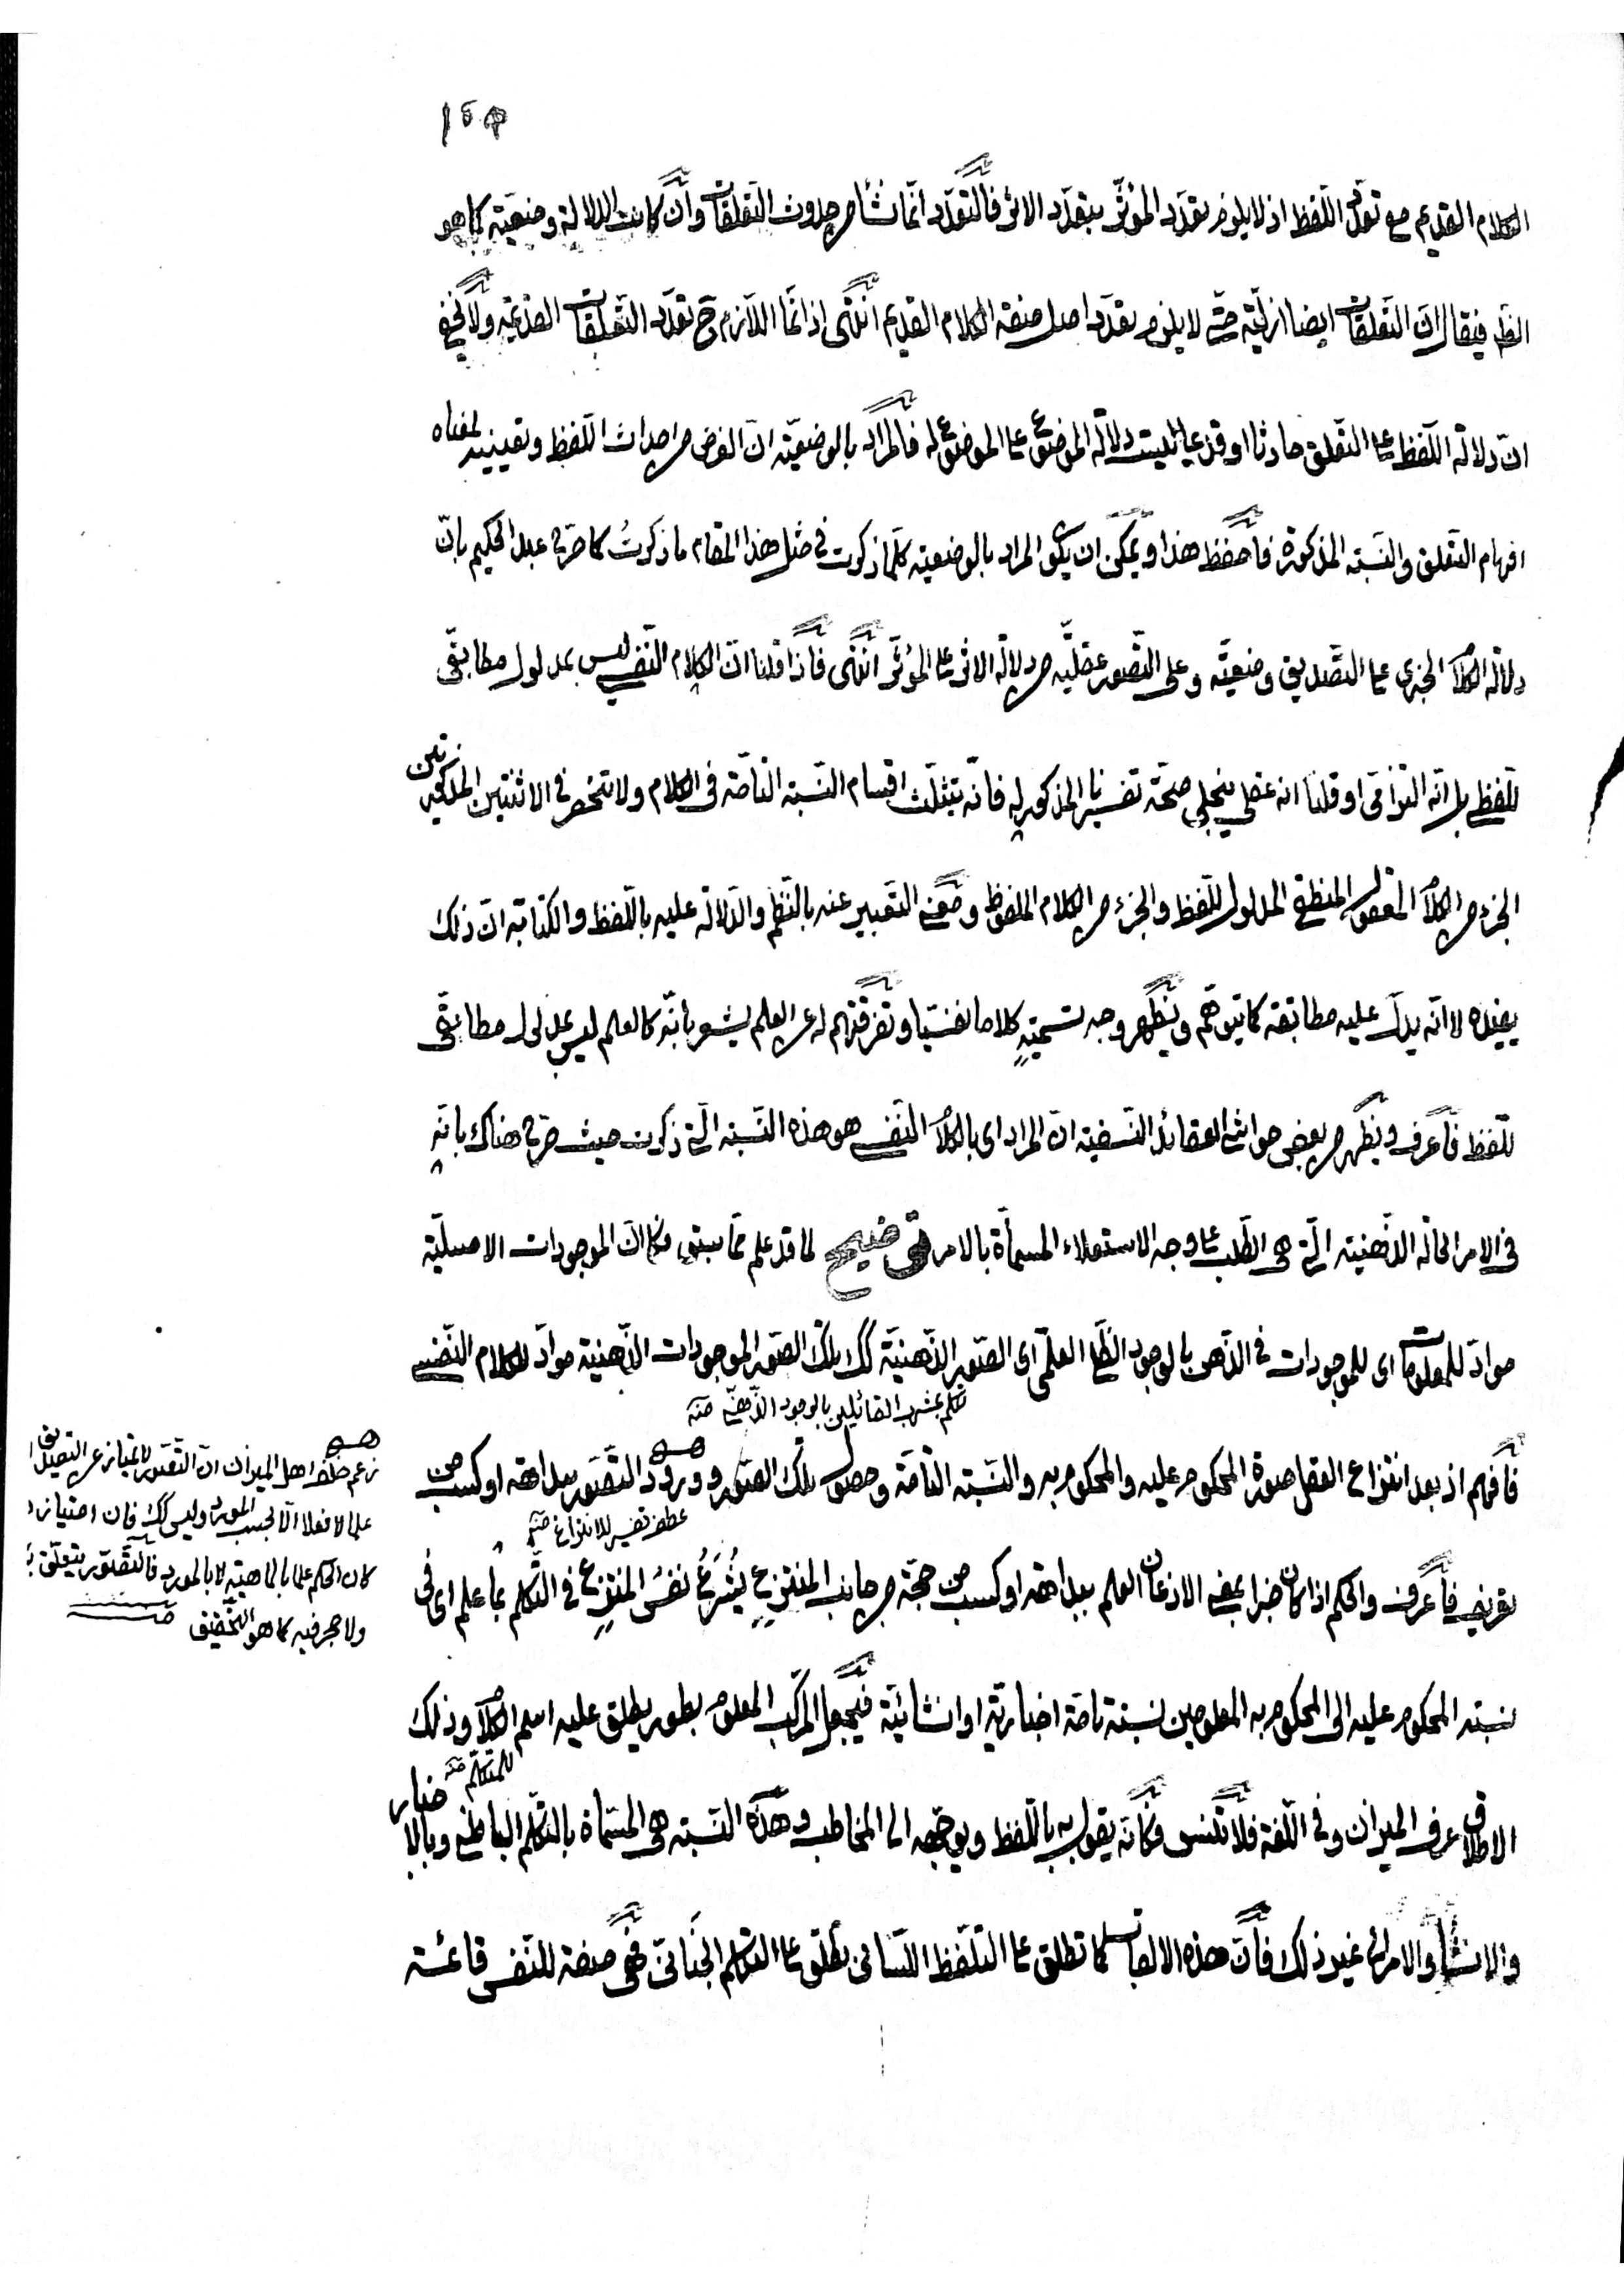 ١٥٣
الكلام القديم مع تعدّد اللّفظ اذ لا يلزم تعدّد المؤثّر بتعدّد الاثر فالتّعدّد انّما نشأ من حدوث التّعلقات وان كانت الدلالة وضعيّة كما هو
الظ فيقال ان التعلقات ايضا ازليّة حتى لا يلزم تعدّد اصل صفة الكلام القديم انتهى اذ انّما اللّازم ح تعدّد التعلقات القديمة ولا يخفى
انّ دلالة اللّفظ على التعلق حادثا او قديما ليست دلالة الموضوع على الموضوع له فالمراد بالوضعيّة ان الغرض من احداث اللفظ وتعيينه لمعناه
افهام التعلق والنّسبة المذكورة فاحفظ هذا ويمكن ان يكون المراد بالوضعية كلّما ذكرت في مثل هذا المقام ما ذكرتُ كما صرّح عبد الحكيم بانّ
دلالة الكلام الخبري على التصديق وضعيّة وعلى التّصور عقليّة من دلالة الاثر على المؤثر انتهى فاذا قلنا انّ الكلام النّفسي ليس بمدلول مطابقيّ
للّفظ بل انّه التزامى او قلنا انه عقلى ينجلى صحّة تفسيرنا المذكور له فانّه يتثلّث اقسام النّسبة التامّة في الكلام ولا تنحصر في الاثنتين المذكورتين
الجزء من الكلام المعقول المنطقى المدلول للّفظ والجزء من الكلام الملفوظ ومعنى التّعبير عنه بالنّظم والدّلالة عليه باللّفظ والكتابة انّ ذلك
يفيده لا انّه يدلّ عليه مطابقة كما يتوهّم ويظهر وجه تسميته كلاما نفسيّا وتفرقتهم له عن العلم يشعر بانّه كالعلم ليس بمدلول مطابقى
للّفظ فاعرف ويظهر من بعض حواشى العقائد النّسفية انّ المراد اى بالكلام النّفسى هو هذه النّسبة الّتي ذكرت حيث صرّح هناك بانّه
في الامر الحالة الذّهنية الّتي هى الطّلب على وجه الاستعلاء المسماة بالامر توضيح لما قد علم ممّا سبق فكما انّ الموجودات الاصليّة
موادّ للمعلومات اى للموجودات في الذّهن بالوجود الظّلى العلمّى اى الصّور الذّهنيّة كك تلك الصّور الموجودات الذّهنية موادّ للكلام النّفسى
تكلم بمشرب القائلين بالوجود الذّهنيّ منه
فافهم اذ بعد انتزاع العقل صورة المحكوم عليه والمحكوم به والنّسبة التامّة وحصول تلك الصّور وورود التّصور ببداهة او كسب من
عطف تفسير للانتزاع منه
تعريف فاعرف والحكم اذا كان خبرا بمعنى الاذعان العلم ببداهة او كسب من حجّة من جانب المنتزِع يُشْرَعُ نفسُ المنتزِع في التّكلم بما علم اى في
نسبة المحكوم عليه الى المحكوم به المعلومين نسبة تامّة اخباريّة او انشائيّة فيجعل المركّب المعلوم بطور يطلق عليه اسم الكلام وذلك
للمتكلّم منه
الاطلاق عرف الميزان وفي اللّغة فلا تنس فكانّه يقول به باللّفظ ويوجّهه الى المخاطب وهذه النّسبة هى المسمّاة بالتكلم الباطنى وبالاخبار
والانشاء والامر الى غير ذلك فانّ هذه الالقاب كما تطلق على التلفّظ اللّسانى يطلق على التكلم الجنانىّ فهى صفة للنّفس قائمة
زعم خلّص اهل الميزان انّ التّصوّر لا يمتاز عن التصديق
علما لا فعلا الّا بحسب المورد وليس كك فان امتيازه
كان الحكم علما بالماهية لا بالمورد فالتّصوّر يتعلّق
ولا حجر فيه كما هو التّحقيق منه